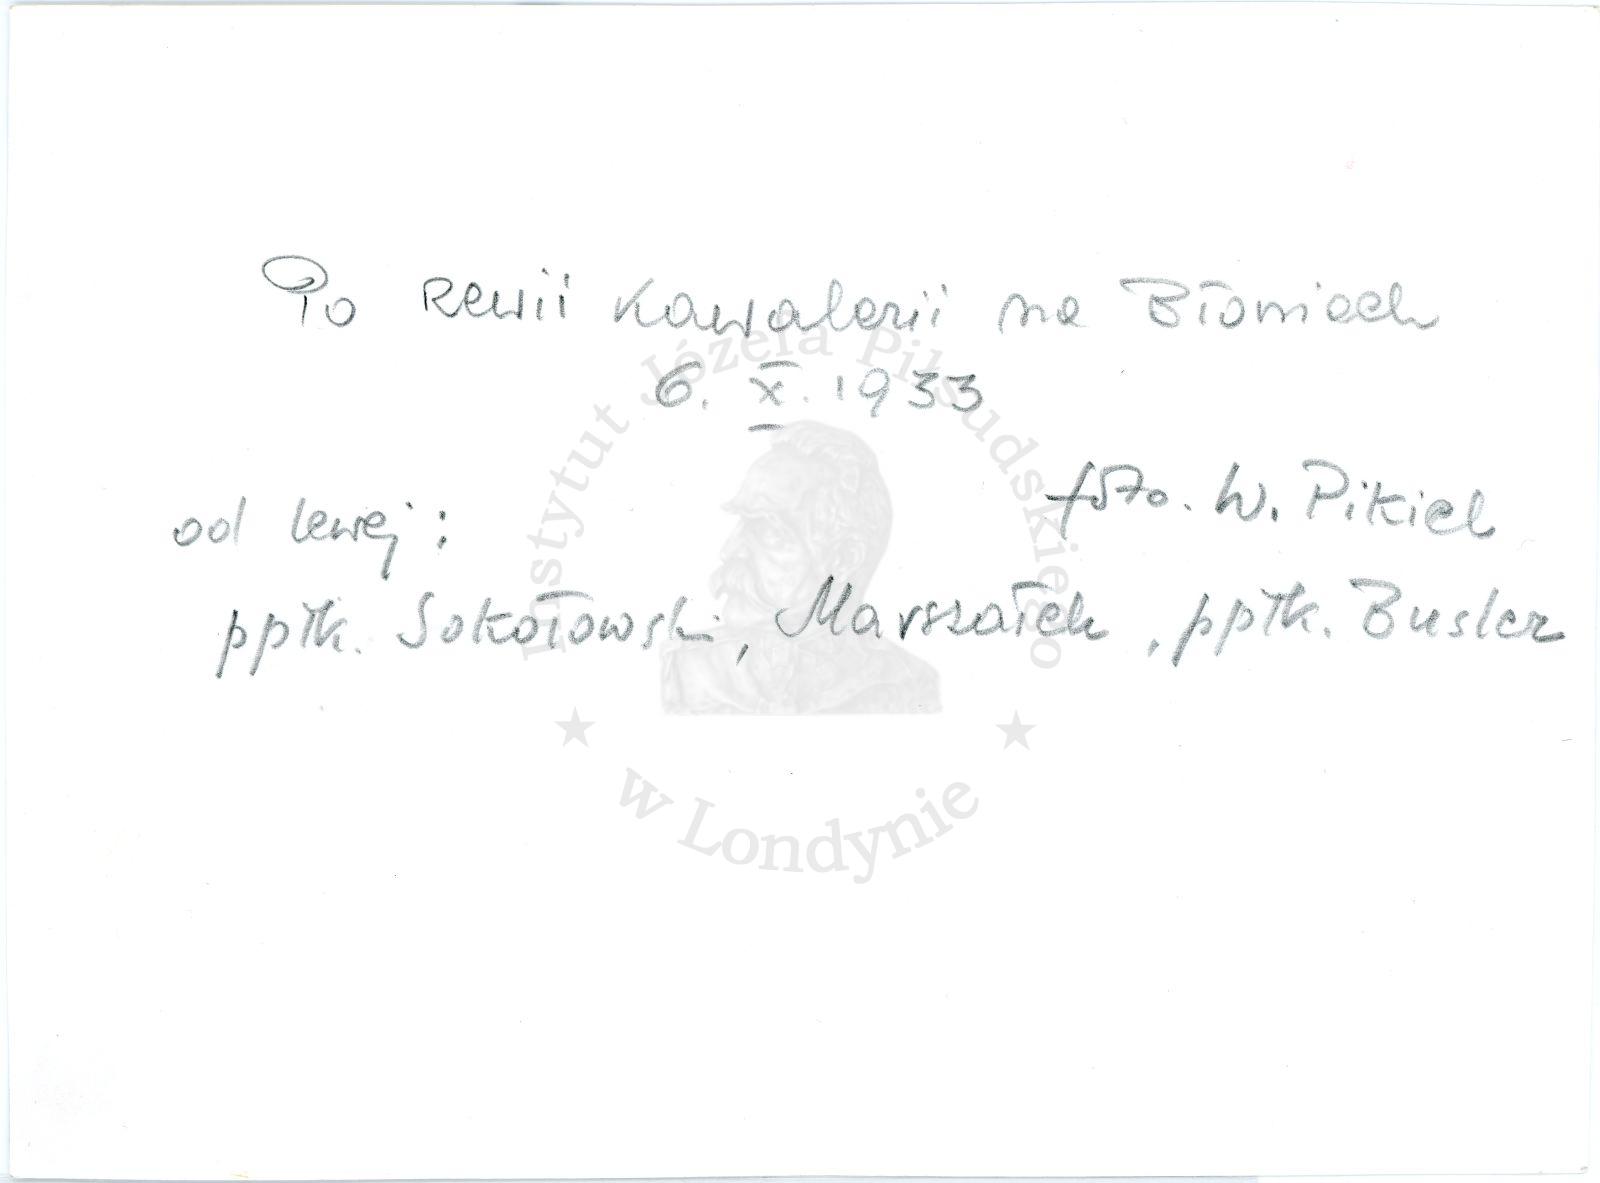 Po Rewii Kawalerii na Błoniach
6. X. 1933
foto. W. Pikiel
od lewej:
ppłk. Sokołowski, Marszałek, ppłk. Busler
Instytut Józefa Piłsudskiego
★ ★
w Londynie